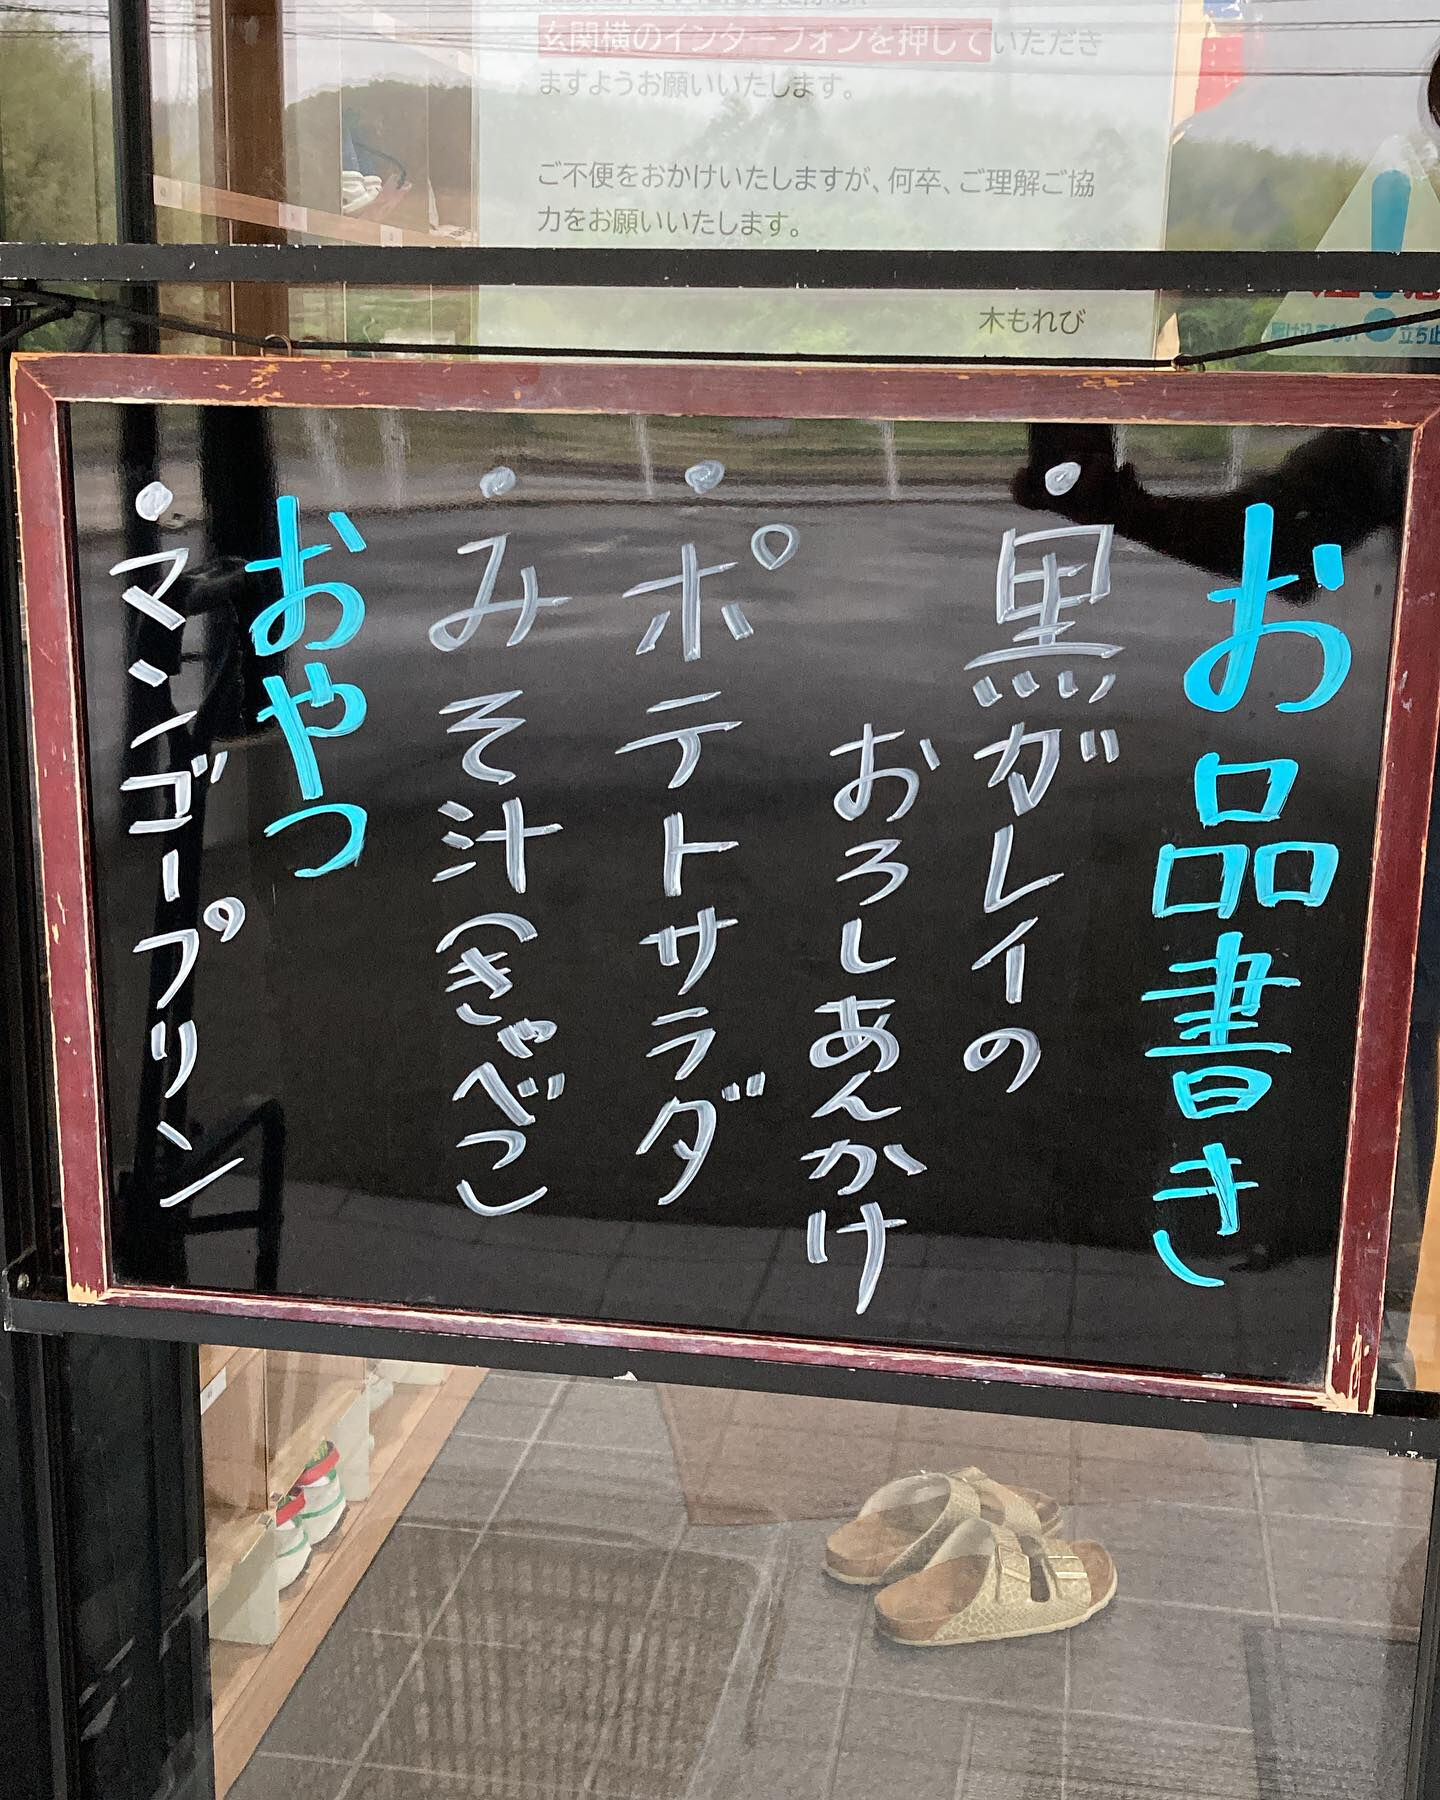 玄関横のインターフォンを押していただき
ますようお願いいたします。
ご不便をおかけいたしますが、何卒、ご理解ご協
力をお願いいたします。
木もれび
お品書き
・黒ガレイの
おろしあんかけ
・ポテトサラダ
・みそ汁(きゃべつ)
おやつ
・マンゴープリン